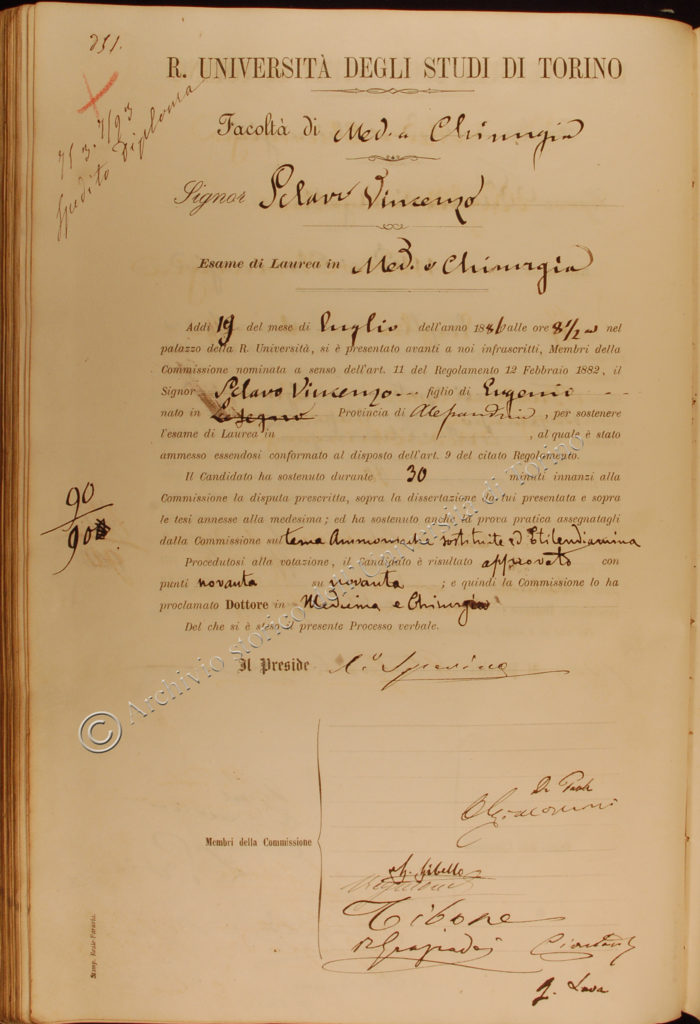 251.
7/23
Spedito Diploma
R. UNIVERSITÀ DEGLI STUDI DI TORINO
Facoltà di Med. e Chirurgia
Signor Sclavo Vincenzo
Esame di Laurea in Med. e Chirurgia
Addì 19 del mese di Luglio dell'anno 1886 alle ore 8 1/2 nel
palazzo della R. Università, si è presentato avanti a noi infrascritti, Membri della
Commissione nominata a senso dell'art. 11 del Regolamento 12 Febbraio 1882, il
Signor Sclavo Vincenzo figlio di Eugenio
nato in Provincia di Alessandria, per sostenere
l'esame di Laurea in , al quale è stato
ammesso essendosi conformato al disposto dell'art. 9 del citato Regolamento.
Il Candidato ha sostenuto durante 30 minuti innanzi alla
Commissione la disputa prescritta, sopra la dissertazione da lui presentata e sopra
le tesi annesse alla medesima; ed ha sostenuto anche la prova pratica assegnatagli
dalla Commissione sul tema Ammoniache sostituite ed Etilendiamina
90
90
Procedutosi alla votazione, il Candidato è risultato approvato con
punti novanta su novanta ; e quindi la Commissione lo ha
proclamato Dottore in Medicina e Chirurgia
Del che si è steso il presente Processo verbale.
Il Preside
Membri della Commissione
Giacomini
Gibello
Tibone
Graziadei
G. Lava
Stamp. Reale-Paravia.
© Archivio storico dell'Università di Torino